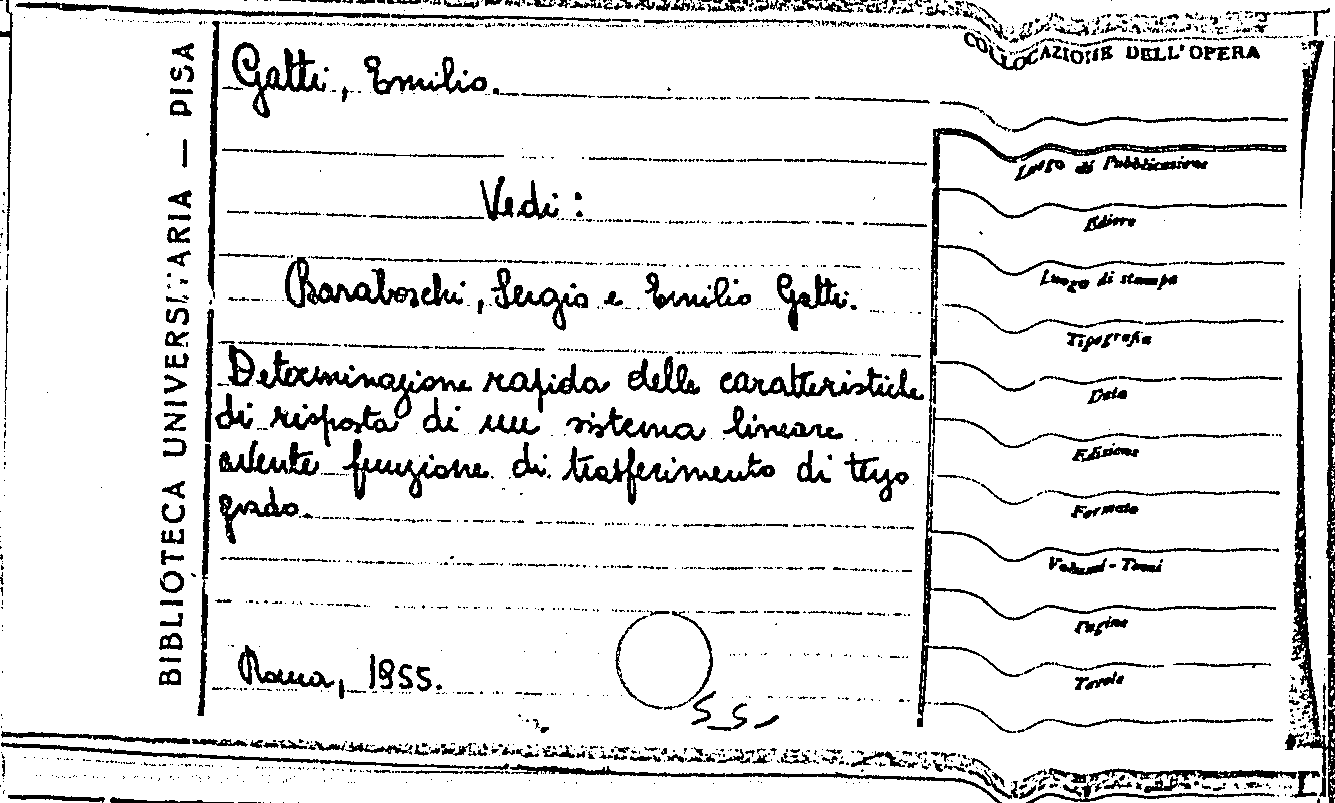 BIBLIOTECA UNIVERSITARIA — PISA
Gatti, Emilio.
Vedi:
Baraboschi, Sergio e Emilio Gatti.
Determinazione rapida delle caratteristiche
di risposta di un sistema lineare
avente funzione di trasferimento di terzo
grado.
Roma, 1955.
S.S.
COLLOCAZIONE DELL'OPERA
Luogo di Pubblicazione
Editore
Luogo di stampa
Tipografia
Data
Edizione
Formato
Volumi - Tomi
Pagine
Tavole